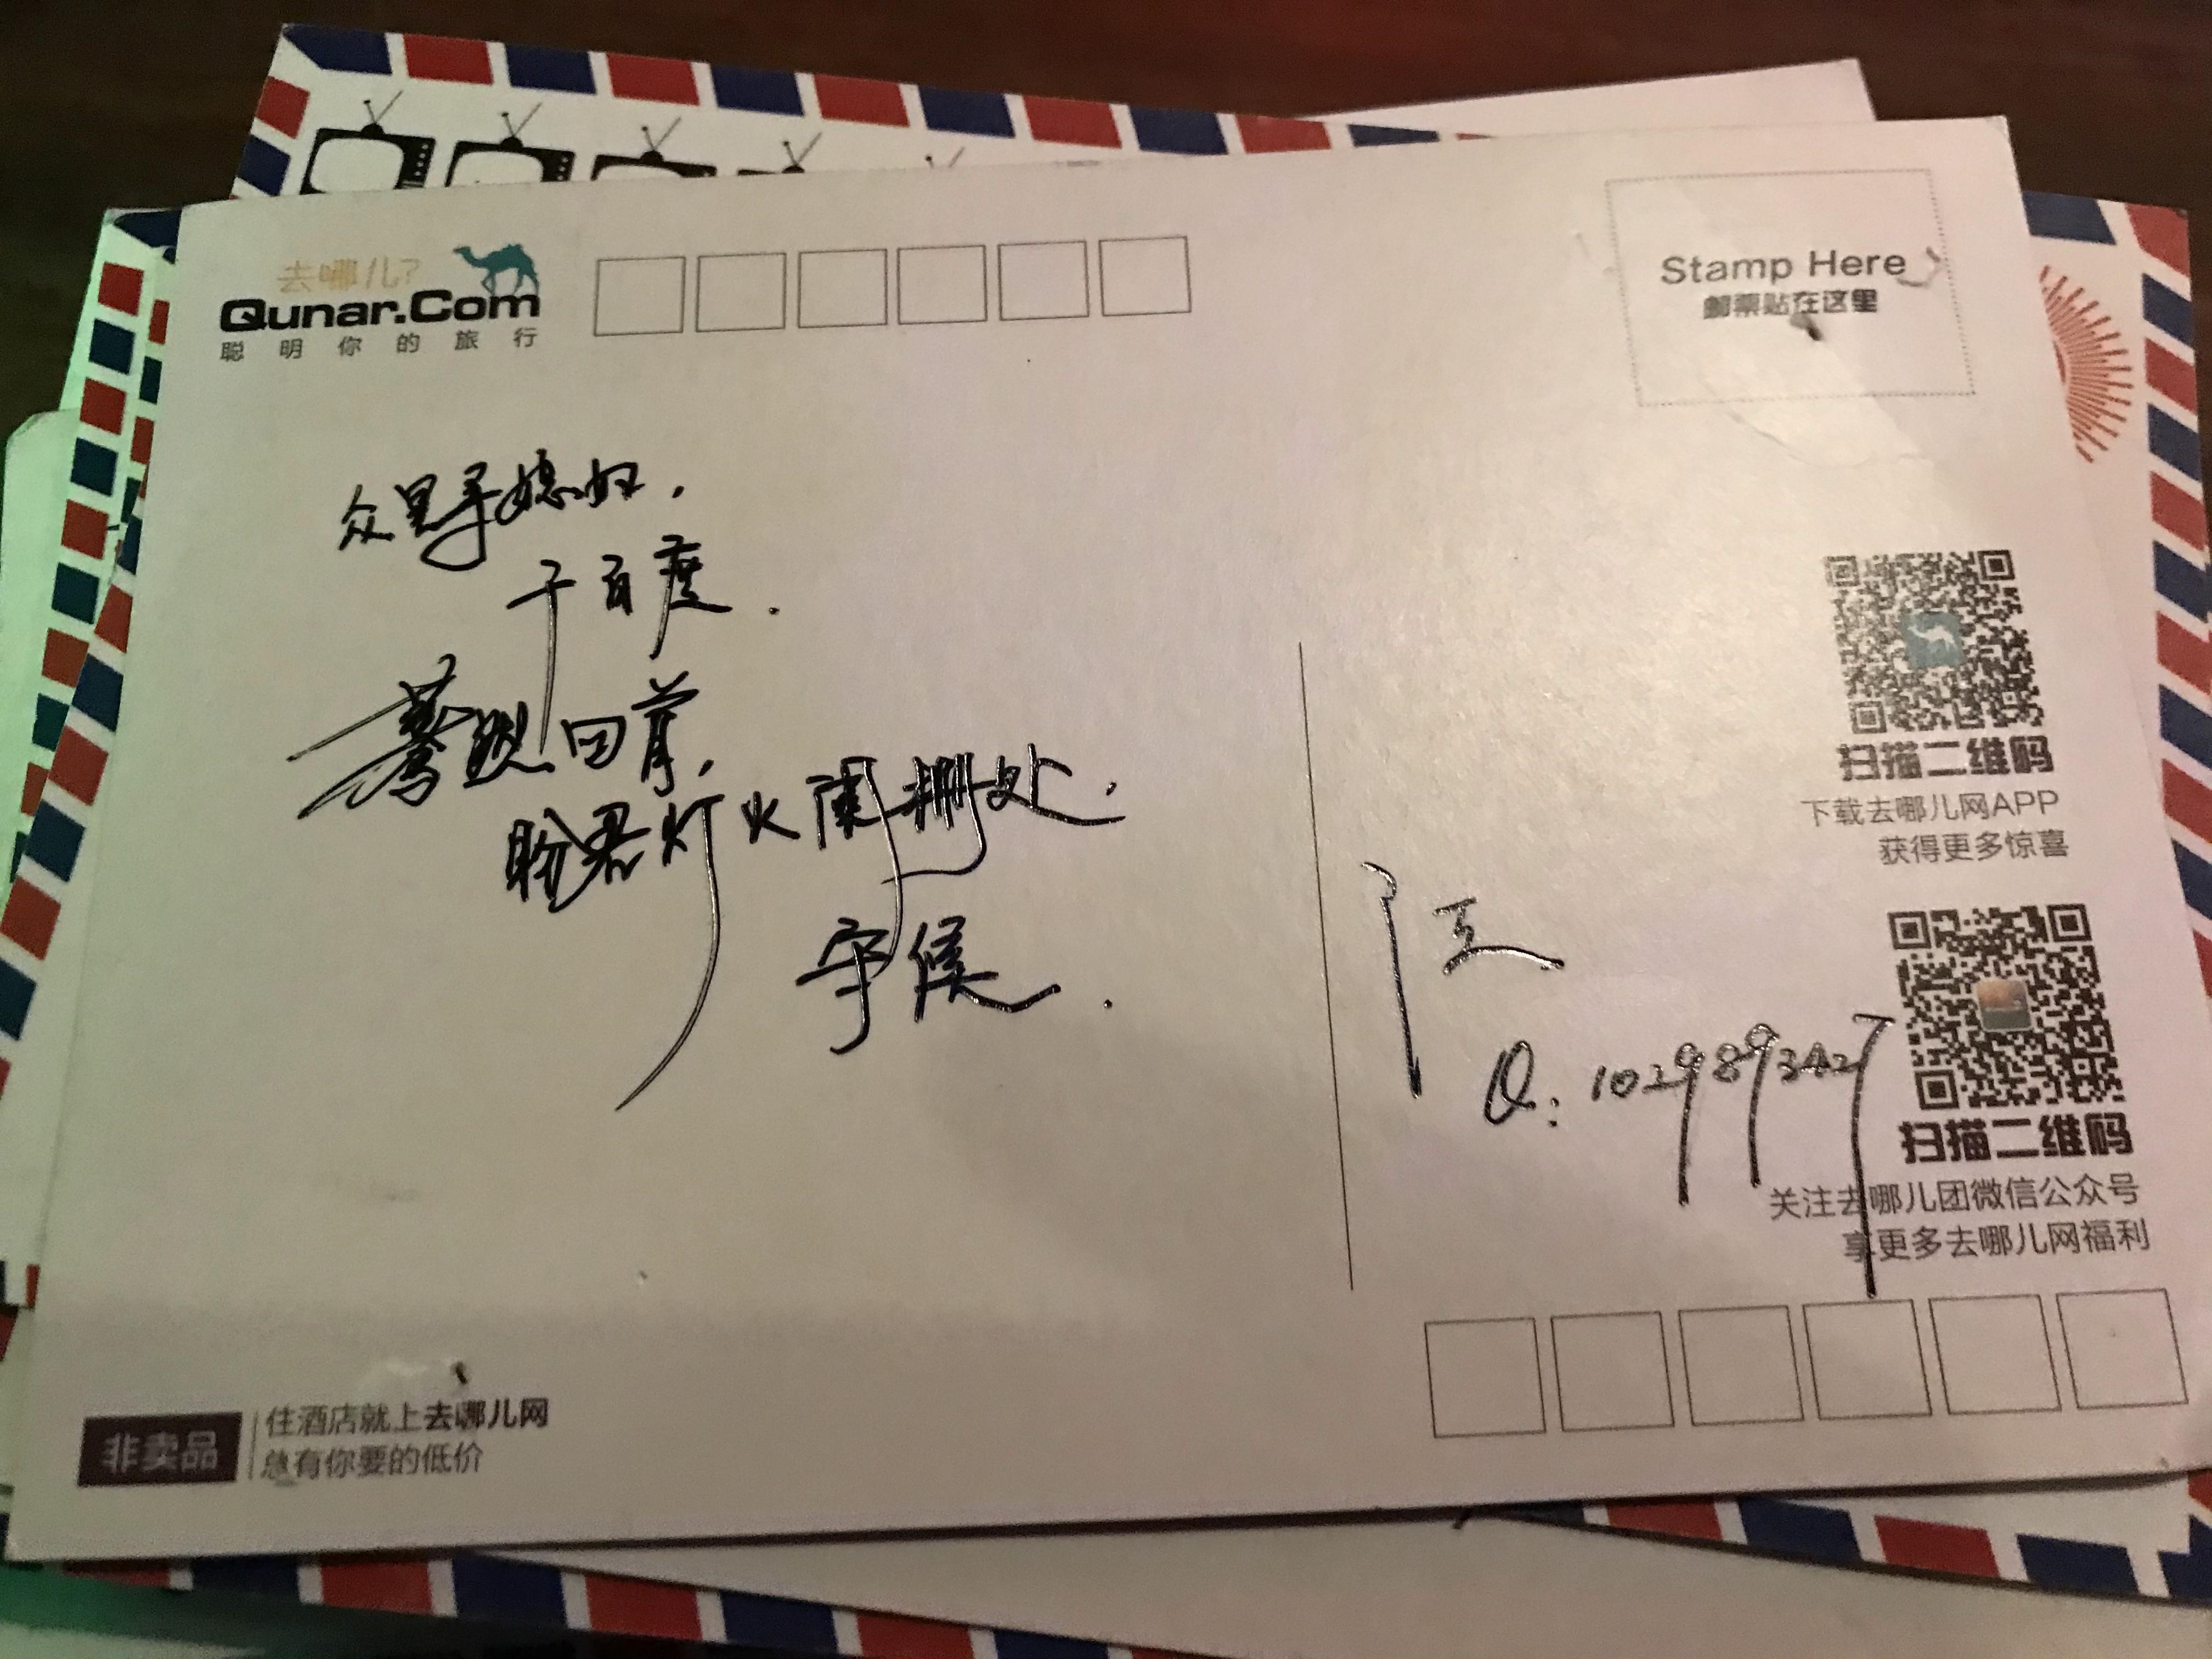 去哪儿?
Qunar.Com
聪明你的旅行
Stamp Here
邮票贴在这里
众里寻媳妇,
千百度.
蓦然回首,
盼君灯火阑珊处.
守候.
扫描二维码
下载去哪儿网APP
获得更多惊喜
Q: 1029893427
扫描二维码
关注去哪儿团微信公众号
享更多去哪儿网福利
非卖品
住酒店就上去哪儿网
总有你要的低价